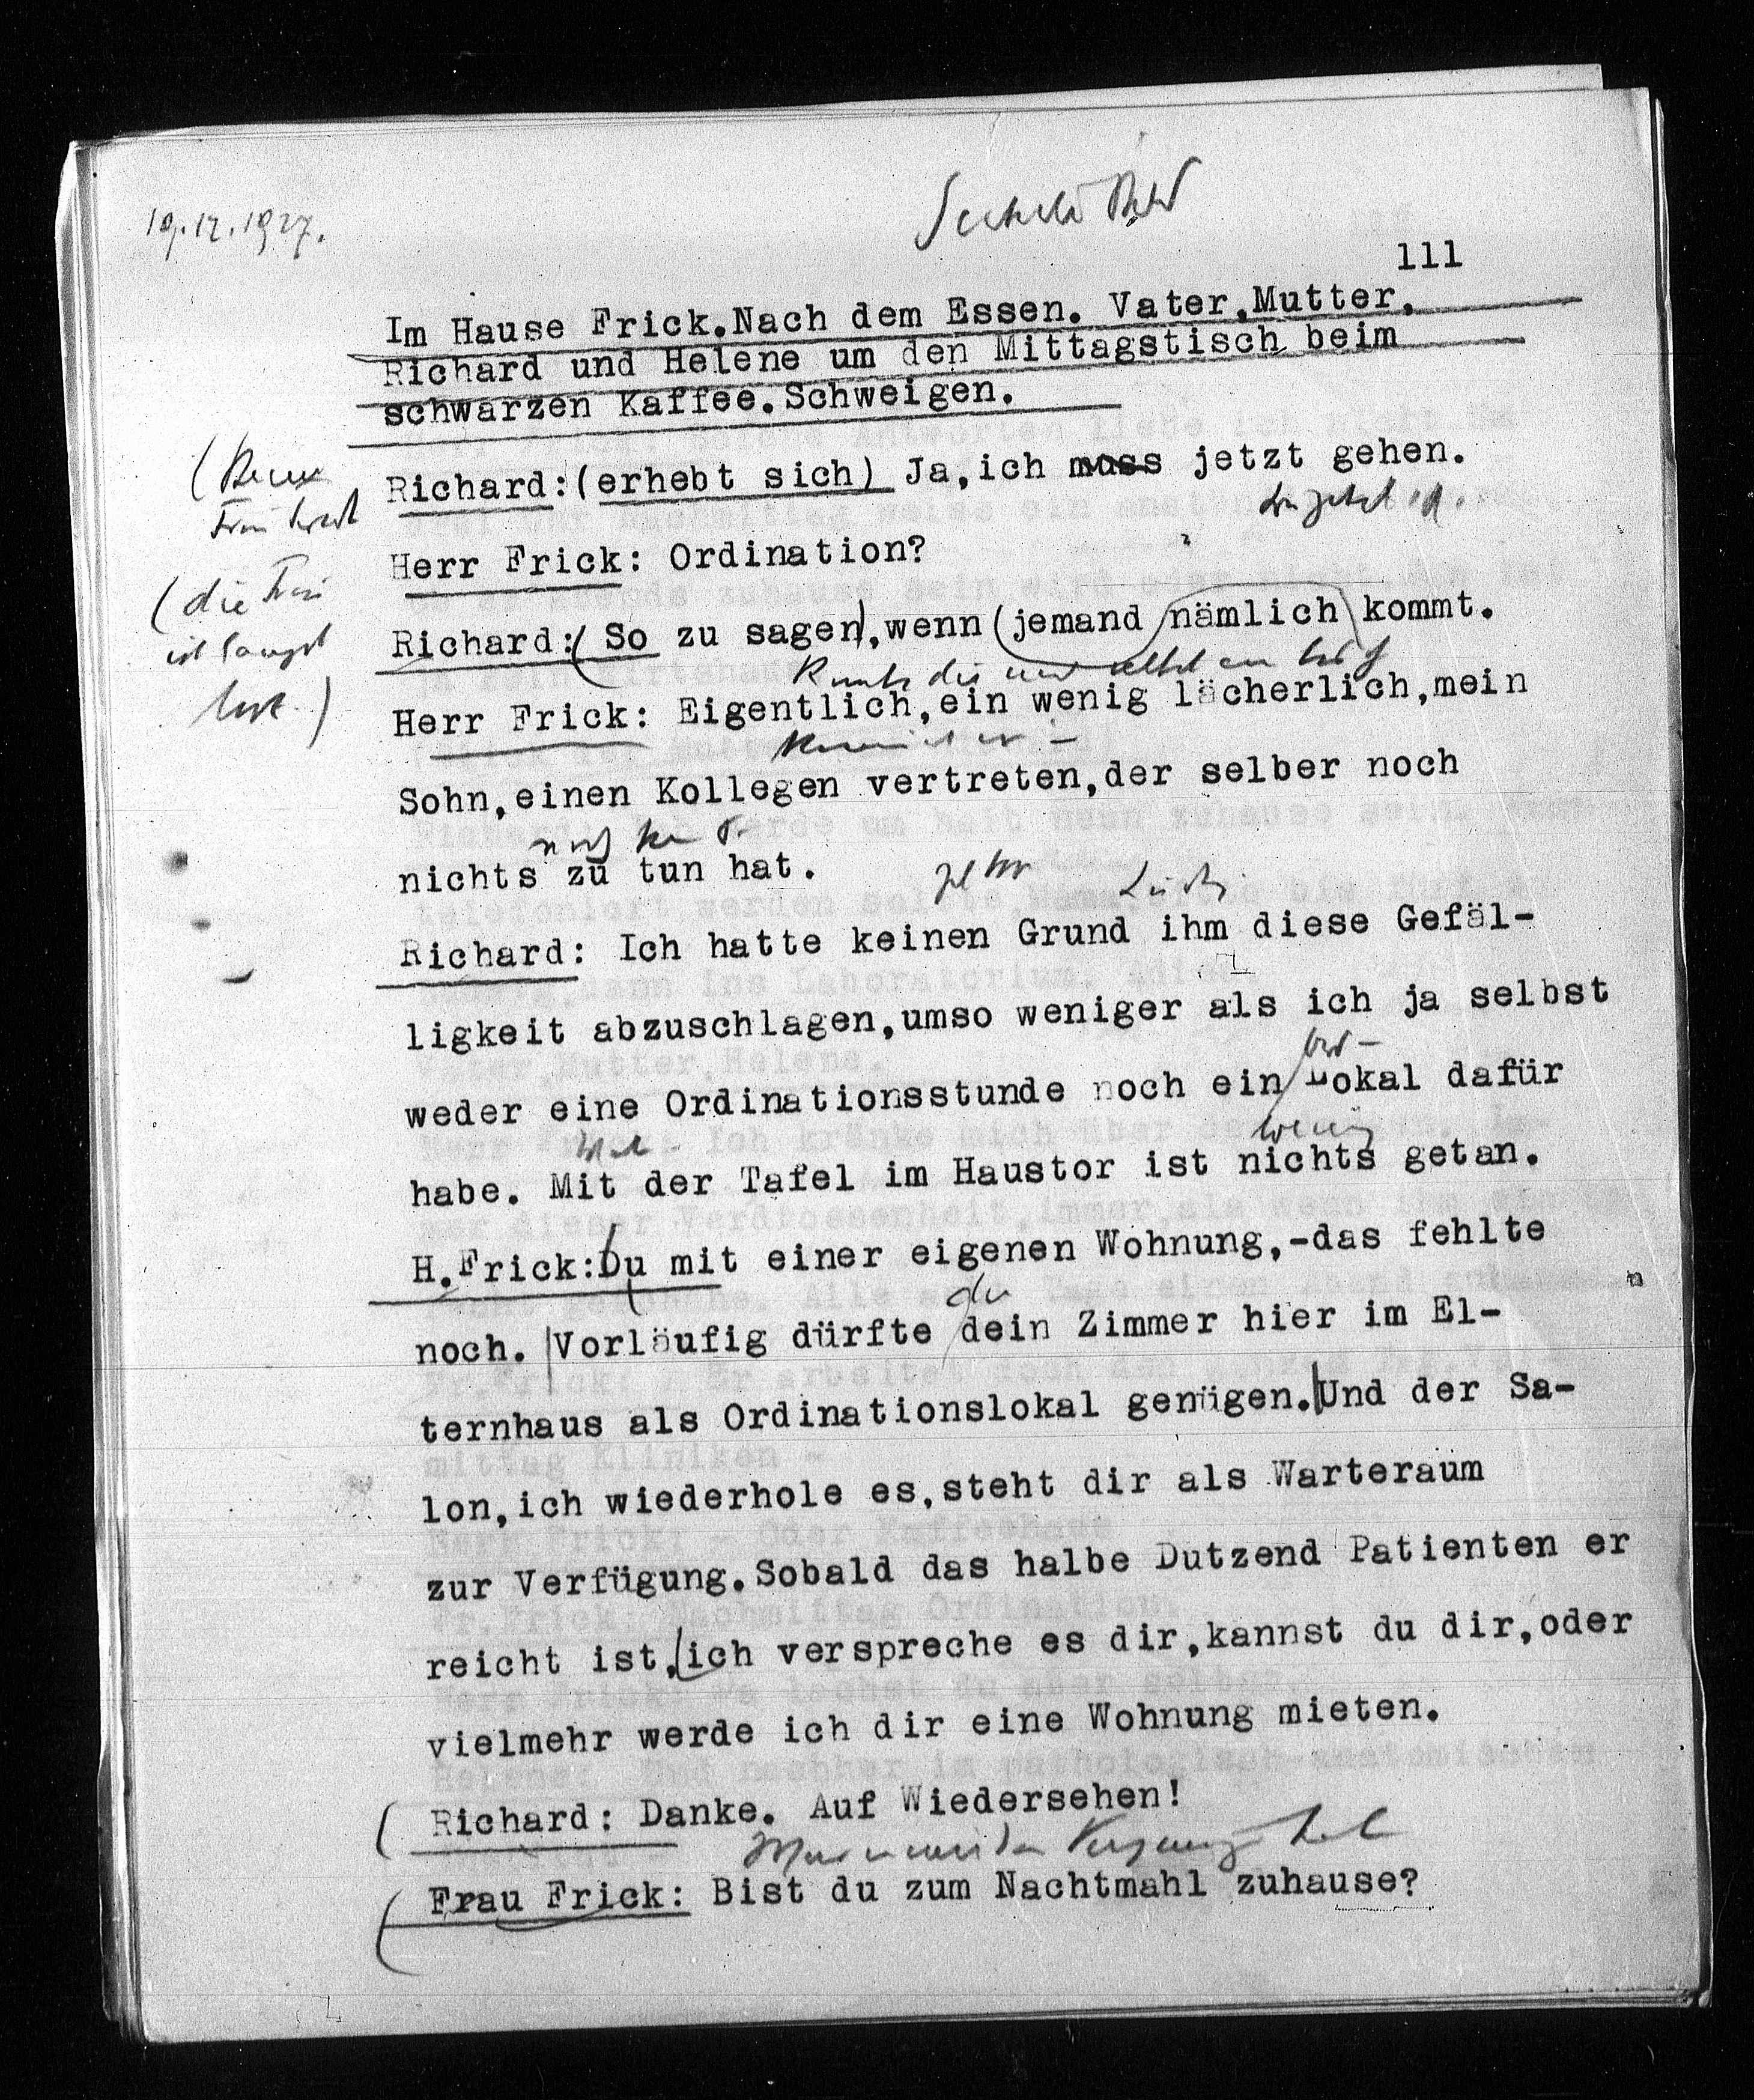 19.12.1927.
111
Im Hause Frick.Nach dem Essen. Vater,Mutter,
Richard und Helene um den Mittagstisch beim
schwarzen Kaffee.Schweigen.
Richard:(erhebt sich) Ja,ich muss jetzt gehen.
Herr Frick: Ordination?
(die Frau
ist längst
Richard:(So zu sagen),wenn (jemand nämlich kommt.
Herr Frick: Eigentlich,ein wenig lächerlich,mein
Sohn,einen Kollegen vertreten,der selber noch
nichts zu tun hat.
Richard: Ich hatte keinen Grund ihm diese Gefäl-
ligkeit abzuschlagen,umso weniger als ich ja selbst
weder eine Ordinationsstunde noch ein Lokal dafür
wenig
habe. Mit der Tafel im Haustor ist nichts getan.
H.Frick:Du mit einer eigenen Wohnung,-das fehlte
du
noch. Vorläufig dürfte dein Zimmer hier im El-
ternhaus als Ordinationslokal genügen.Und der Sa-
lon,ich wiederhole es,steht dir als Warteraum
zur Verfügung.Sobald das halbe Dutzend Patienten er
reicht ist,ich verspreche es dir,kannst du dir,oder
vielmehr werde ich dir eine Wohnung mieten.
Richard: Danke. Auf Wiedersehen!
Frau Frick: Bist du zum Nachtmahl zuhause?